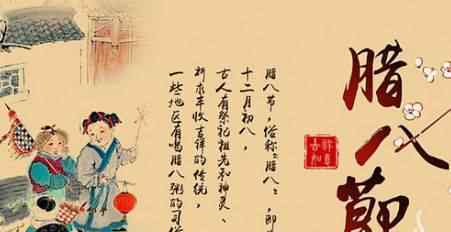 腊八節
腊八节，俗称"腊八"，即
十二月初八，
古人有祭祀祖先和神灵、
祈求丰收吉祥的传统，
一些地区有喝腊八粥的习俗